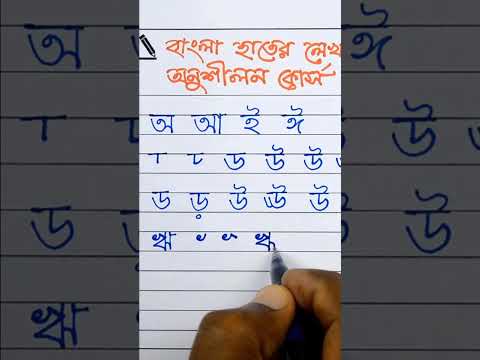 বাংলা হাতের লেখ
অনুশীলন কোর্স
অ আ ই ঈ
ড উ উ
ড ড় উ ঊ উ
ঋ